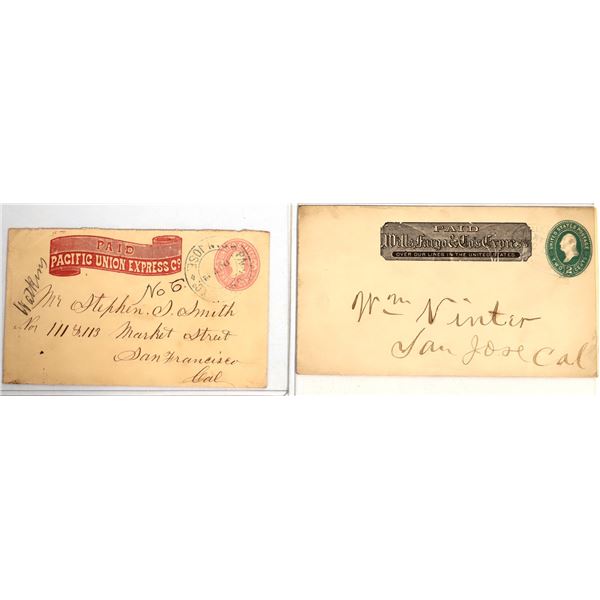 PAID
PACIFIC UNION EXPRESS CO
Watkins
No 6,
SAN JOSE
Mr Stephen S. Smith
Nos 111 & 113 Market Street
San Francisco
Cal
PAID
Wells Fargo & Co's Express
OVER OUR LINES IN THE UNITED STATES
UNITED STATES POSTAGE
TWO 2 CENTS
Wm Ninter
San Jose Cal